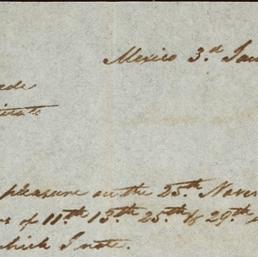 Mexico 3.d Jan
pleasure on the 25.th Novr
of 11.th 13.th 25.th & 29.th
which I note.